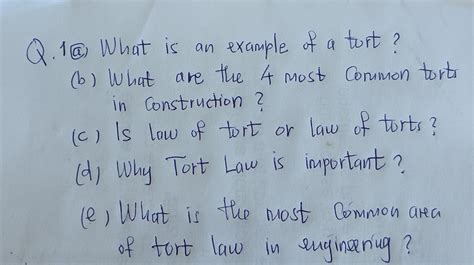 Q.1(a) What is an example of a tort?
(b) What are the 4 most Common torts
in Construction?
(c) Is law of tort or law of torts?
(d) Why Tort Law is important?
(e) What is the most Common area
of tort law in engineering?